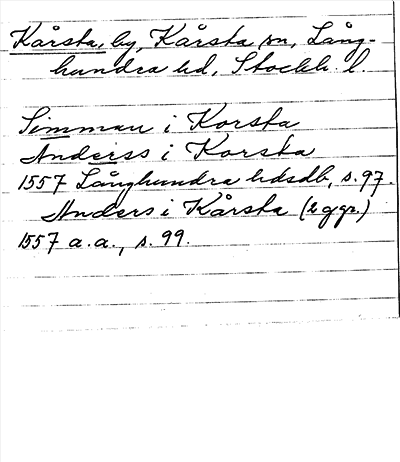 Kårsta, by, Kårsta sn, Lång-
hundra hd, Stockh. l.
Simmun i Korsta
Anderss i Korsta
1557 Långhundra hdsdb, s. 97.
Anders i Kårsta (2 ggr.)
1557 a. a., s. 99.